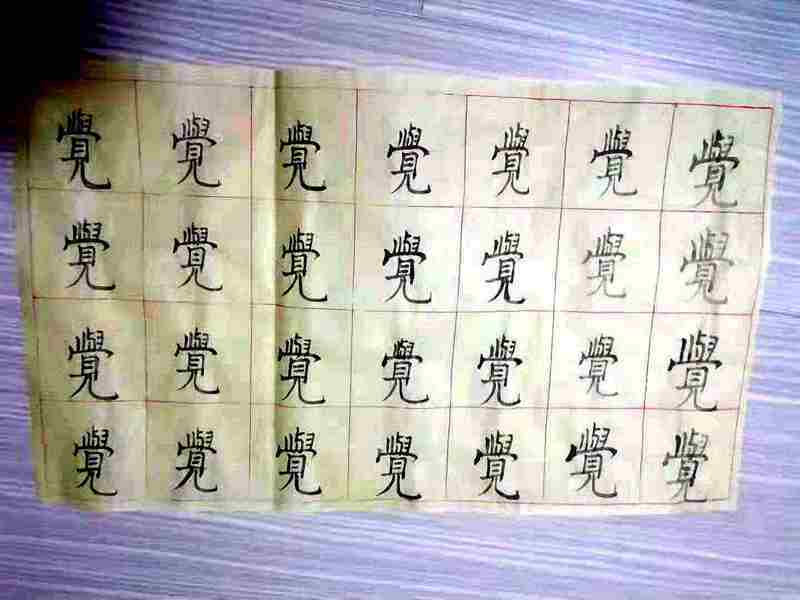 覺覺覺覺覺覺覺
覺覺覺覺覺覺覺
覺覺覺覺覺覺覺
覺覺覺覺覺覺覺